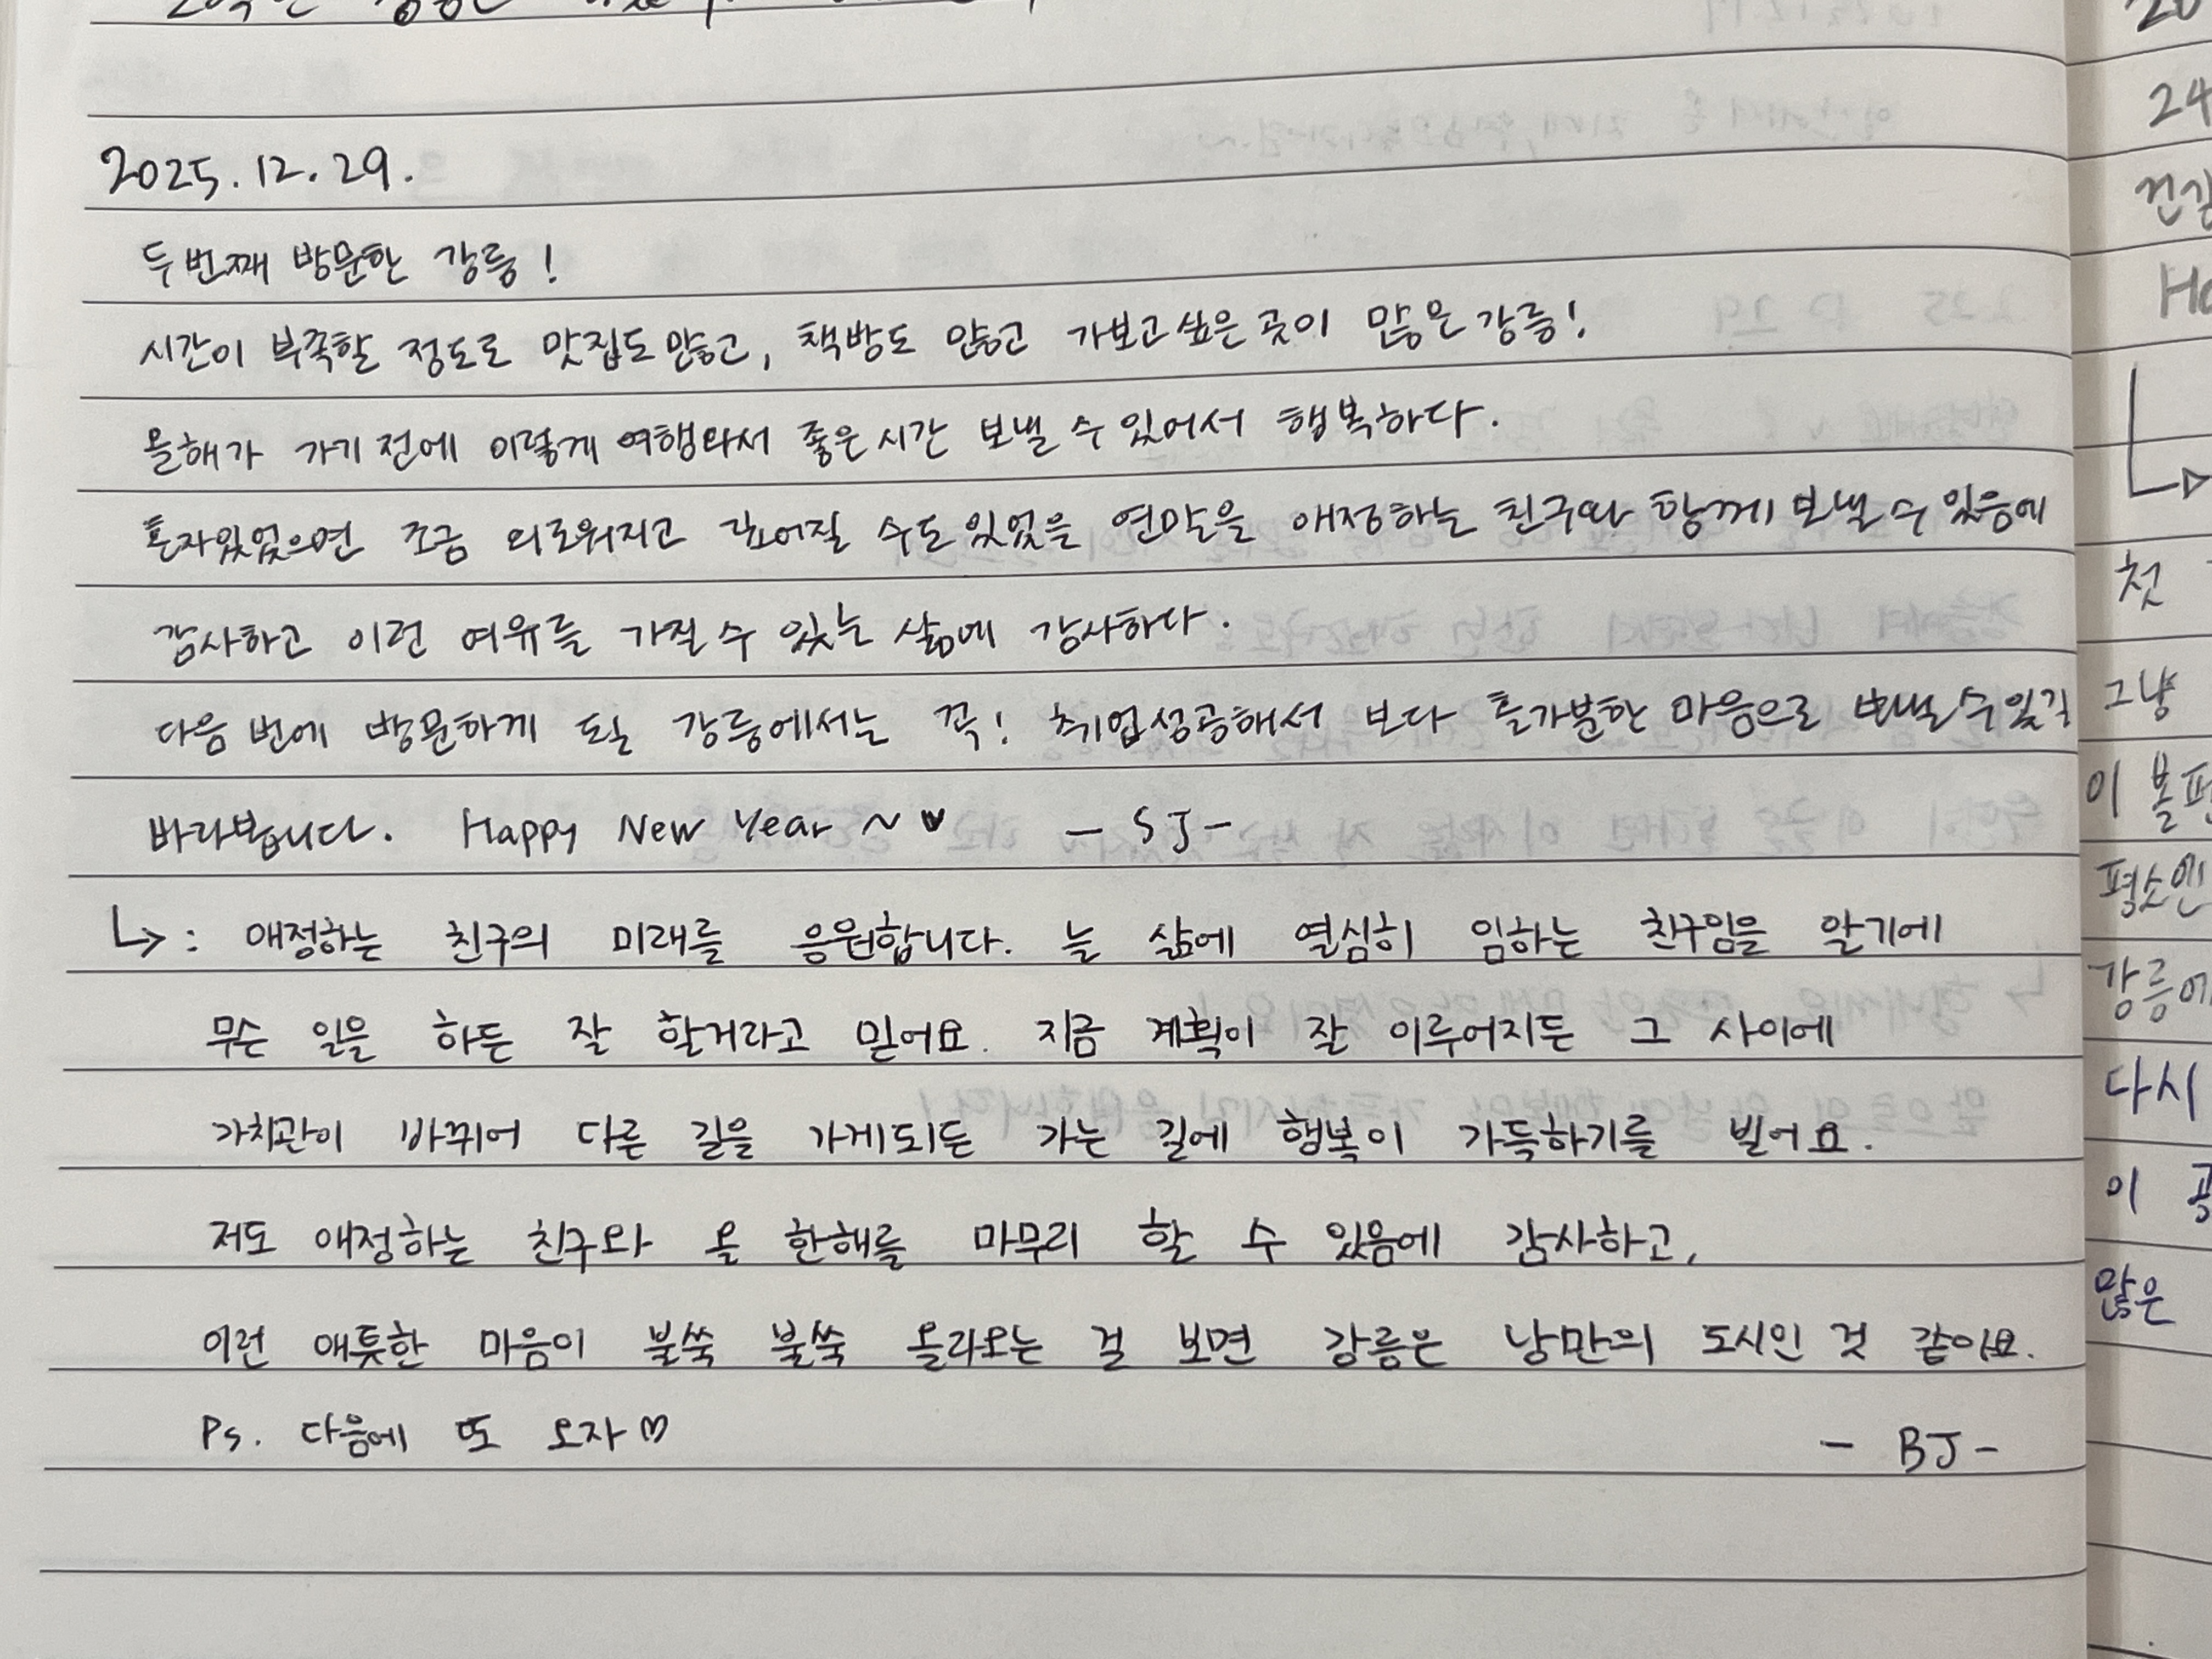 2025.12.29.
두번째 방문한 강릉!
시간이 부족할 정도로 맛집도 많고, 책방도 많고 가보고싶은 곳이 많은 강릉!
올해가 가기 전에 이렇게 여행와서 좋은 시간 보낼 수 있어서 행복하다.
혼자있었으면 조금 외로워지고 깊어질 수도 있었을 연말을 애정하는 친구와 함께 보낼 수 있음에
감사하고 이런 여유를 가질 수 있는 삶에 감사하다.
다음 번에 방문하게 될 강릉에서는 꼭! 취업성공해서 보다 홀가분한 마음으로 보낼 수 있길
바라봅니다. Happy New Year ~ ♥ - SJ -
↳ : 애정하는 친구의 미래를 응원합니다. 늘 삶에 열심히 임하는 친구임을 알기에
무슨 일을 하든 잘 할거라고 믿어요. 지금 계획이 잘 이루어지든 그 사이에
가치관이 바뀌어 다른 길을 가게되든 가는 길에 행복이 가득하기를 빌어요.
저도 애정하는 친구와 올 한해를 마무리 할 수 있음에 감사하고,
이런 애틋한 마음이 불쑥 불쑥 올라오는 걸 보면 강릉은 낭만의 도시인 것 같아요.
Ps. 다음에 또 오자♡ - BJ -
24
첫
그냥
이
평소엔
강릉에
다시
이
많은